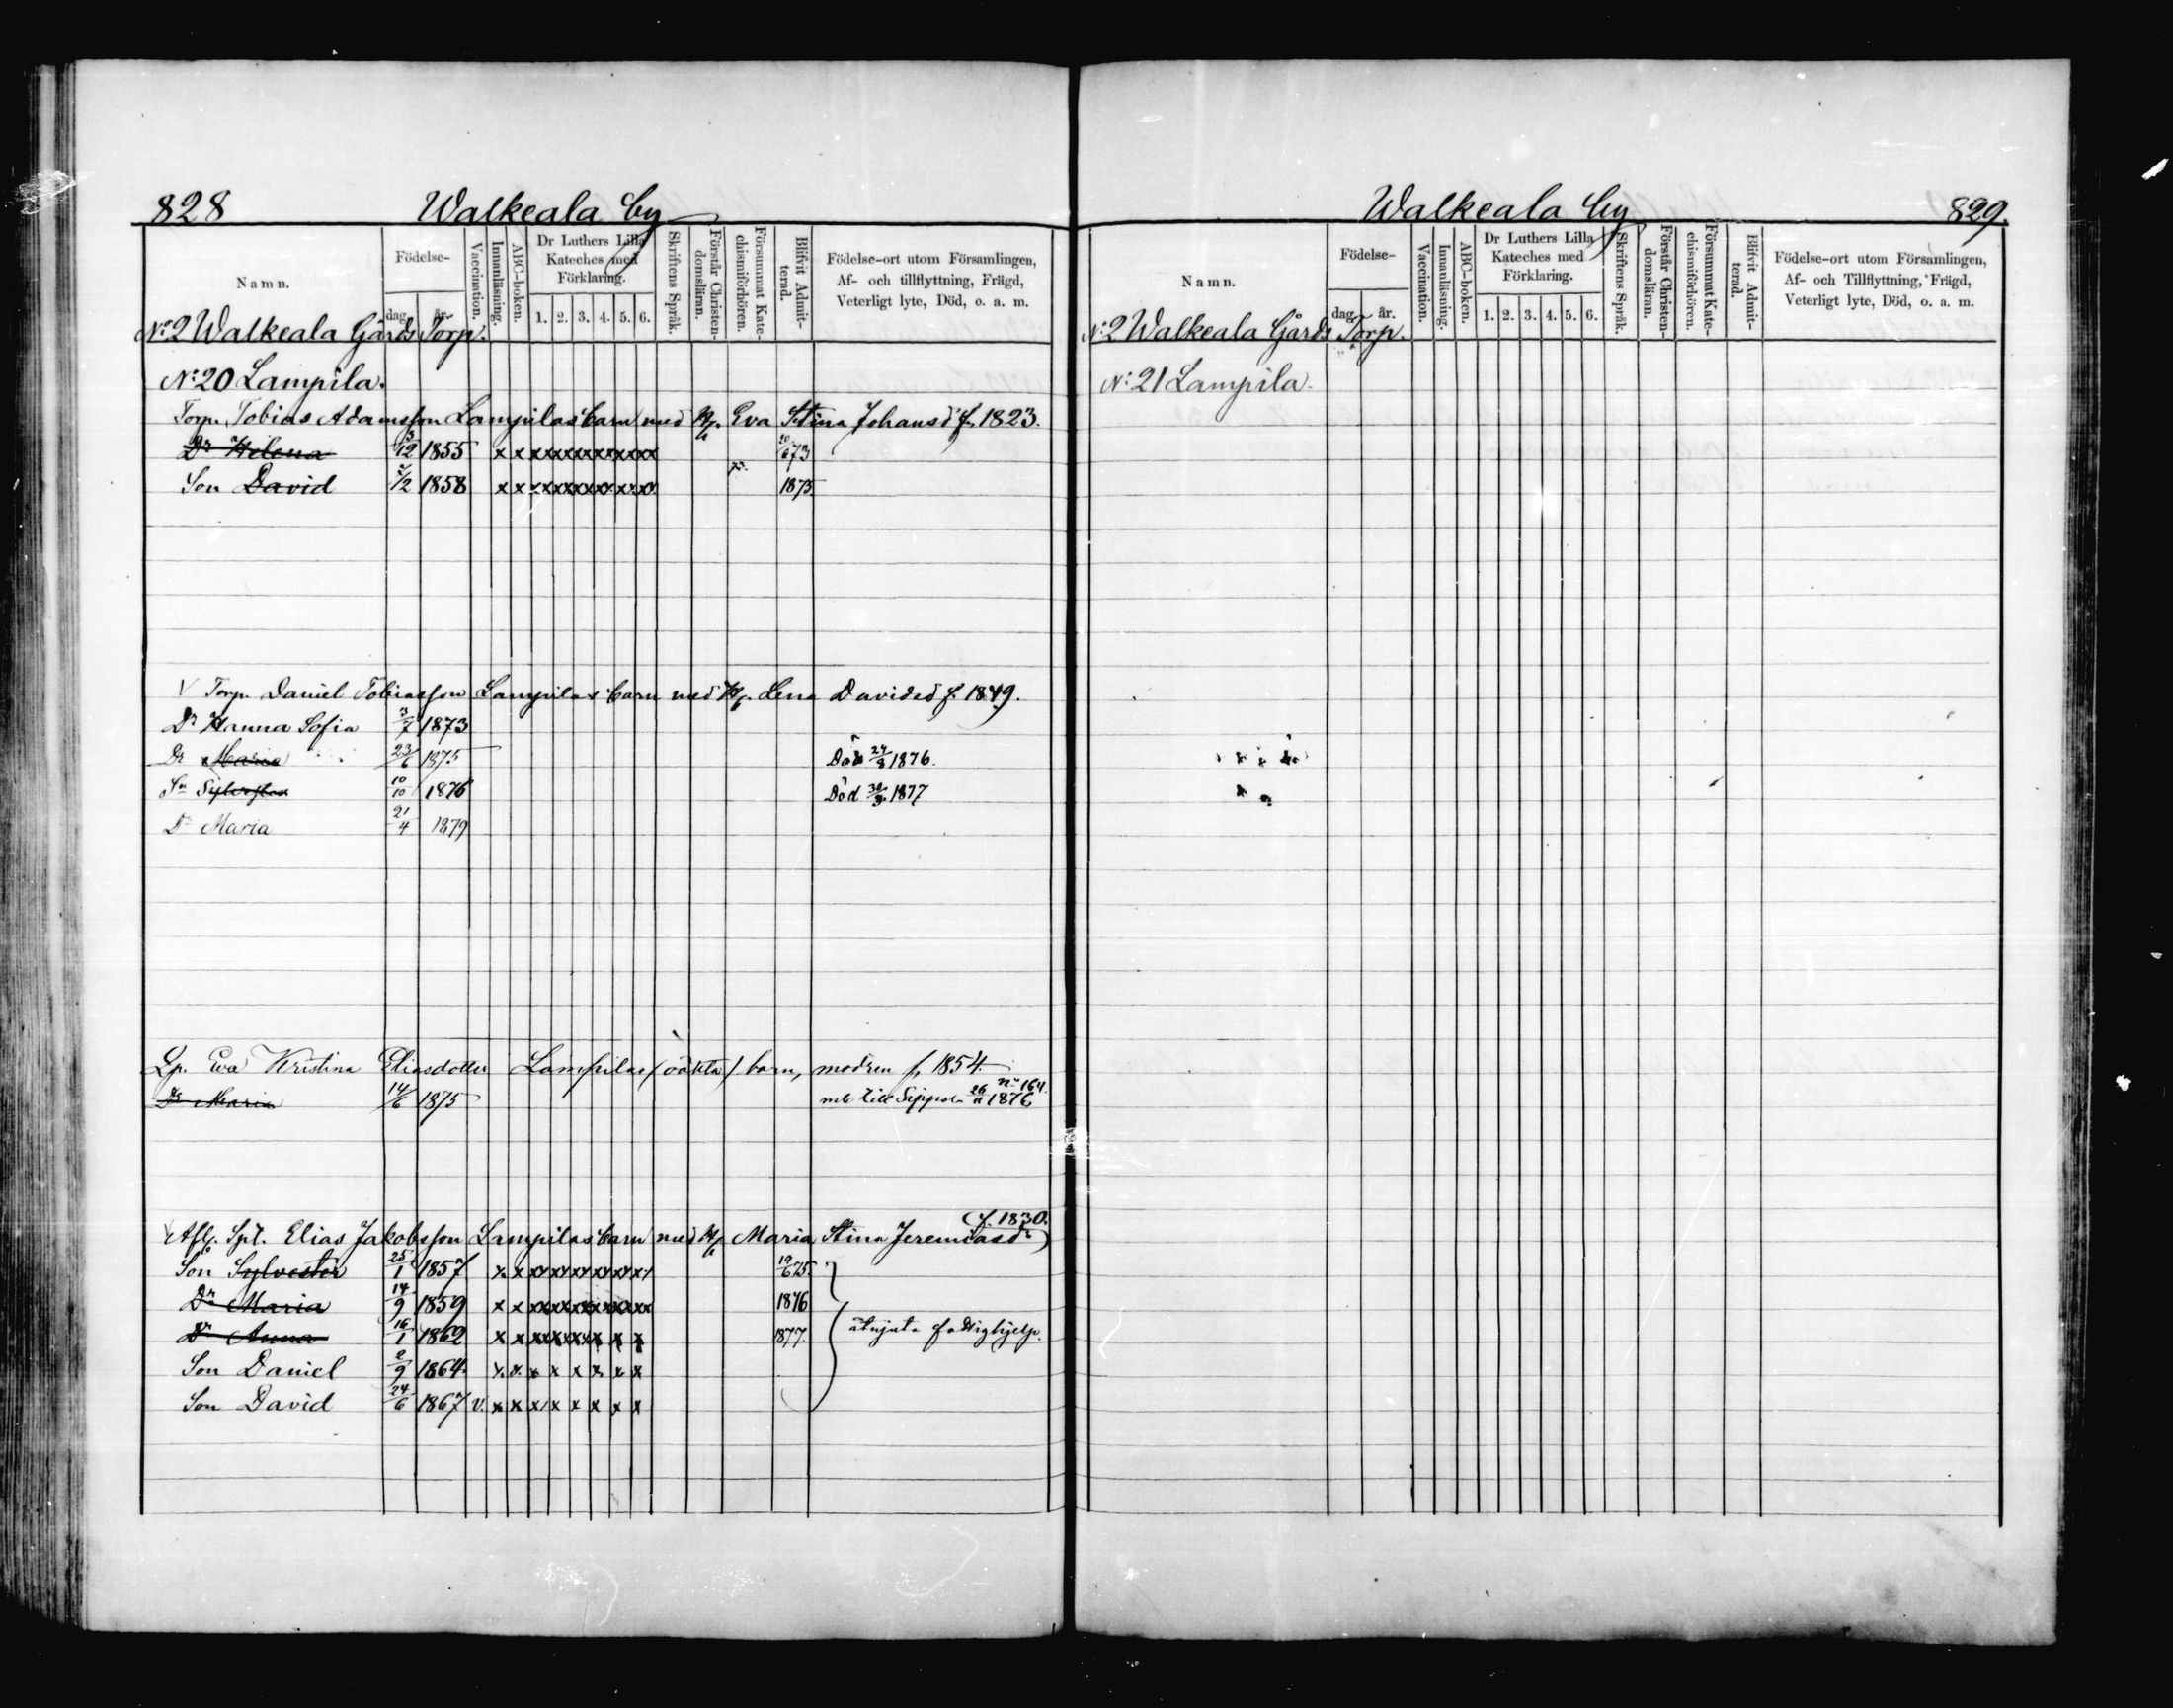 828 Walkeala by
Namn.
Födelse-
dag. år.
Vaccination.
Innanläsning.
ABC-boken.
Dr Luthers Lilla Kateches med Förklaring.
1. 2. 3. 4. 5. 6.
Skriftens Språk.
Förstår Christendomsläran.
Försummat Katechismiförhören.
Blifvit Admitterad.
Födelse-ort utom Församlingen,
Af- och tillflyttning, Frägd,
Veterligt lyte, Död, o. a. m.
No 2 Walkeala Gårds Torp.
No 20 Lampila.
Torp. Tobias Adamsson Lampilas barn med H. Eva Stina Johansd f. 1823.
Dr Helena 3/12 1855 x x xxxxxxxxxxxx 73
Son David 2/2 1858 x x xxxxxxxxxxx 1875
V Torp. Daniel Tobiasson Lampilas barn med H. Lena Davidsd f. 1849.
Dr Hanna Sofia 3/7 1873
Dr Maria 23/6 1875 Död 24/3 1876.
Sn Sylvester 10/10 1876 Död 30/3 1877
Dr Maria 21/4 1879
Lp. Eva Kristina Eliasdotter Lampilas (oäkta) barn, modren f. 1854.
Dr Maria 14/6 1875 mb till Sippola 26/11 1876 No 164.
Afl. Spt. Elias Jakobsson Lampilas barn med H. Maria Stina Jeremiasdr f. 1830.
Son Sylvester 25/1 1857 x x xxxxxxxxxxx 19/6 75.
Dr Maria 14/9 1859 x x xxxxxxxxxxxx 1876
Dr Anna 16/1 1862 x x xxxxxxxx x x 1877.
åtnjuta fattighjelp.
Son Daniel 2/9 1864. x. x. x x x x x x
Son David 24/6 1867 v. x x x x x x x x
Walkeala by 829.
Namn.
Födelse-
dag. år.
Vaccination.
Innanläsning.
ABC-boken.
Dr Luthers Lilla Kateches med Förklaring.
1. 2. 3. 4. 5. 6.
Skriftens Språk.
Förstår Christendomsläran.
Försummat Katechismiförhören.
Blifvit Admitterad.
Födelse-ort utom Församlingen,
Af- och Tillflyttning, Frägd,
Veterligt lyte, Död, o. a. m.
No 2 Walkeala Gårds Torp.
No 21 Lampila.